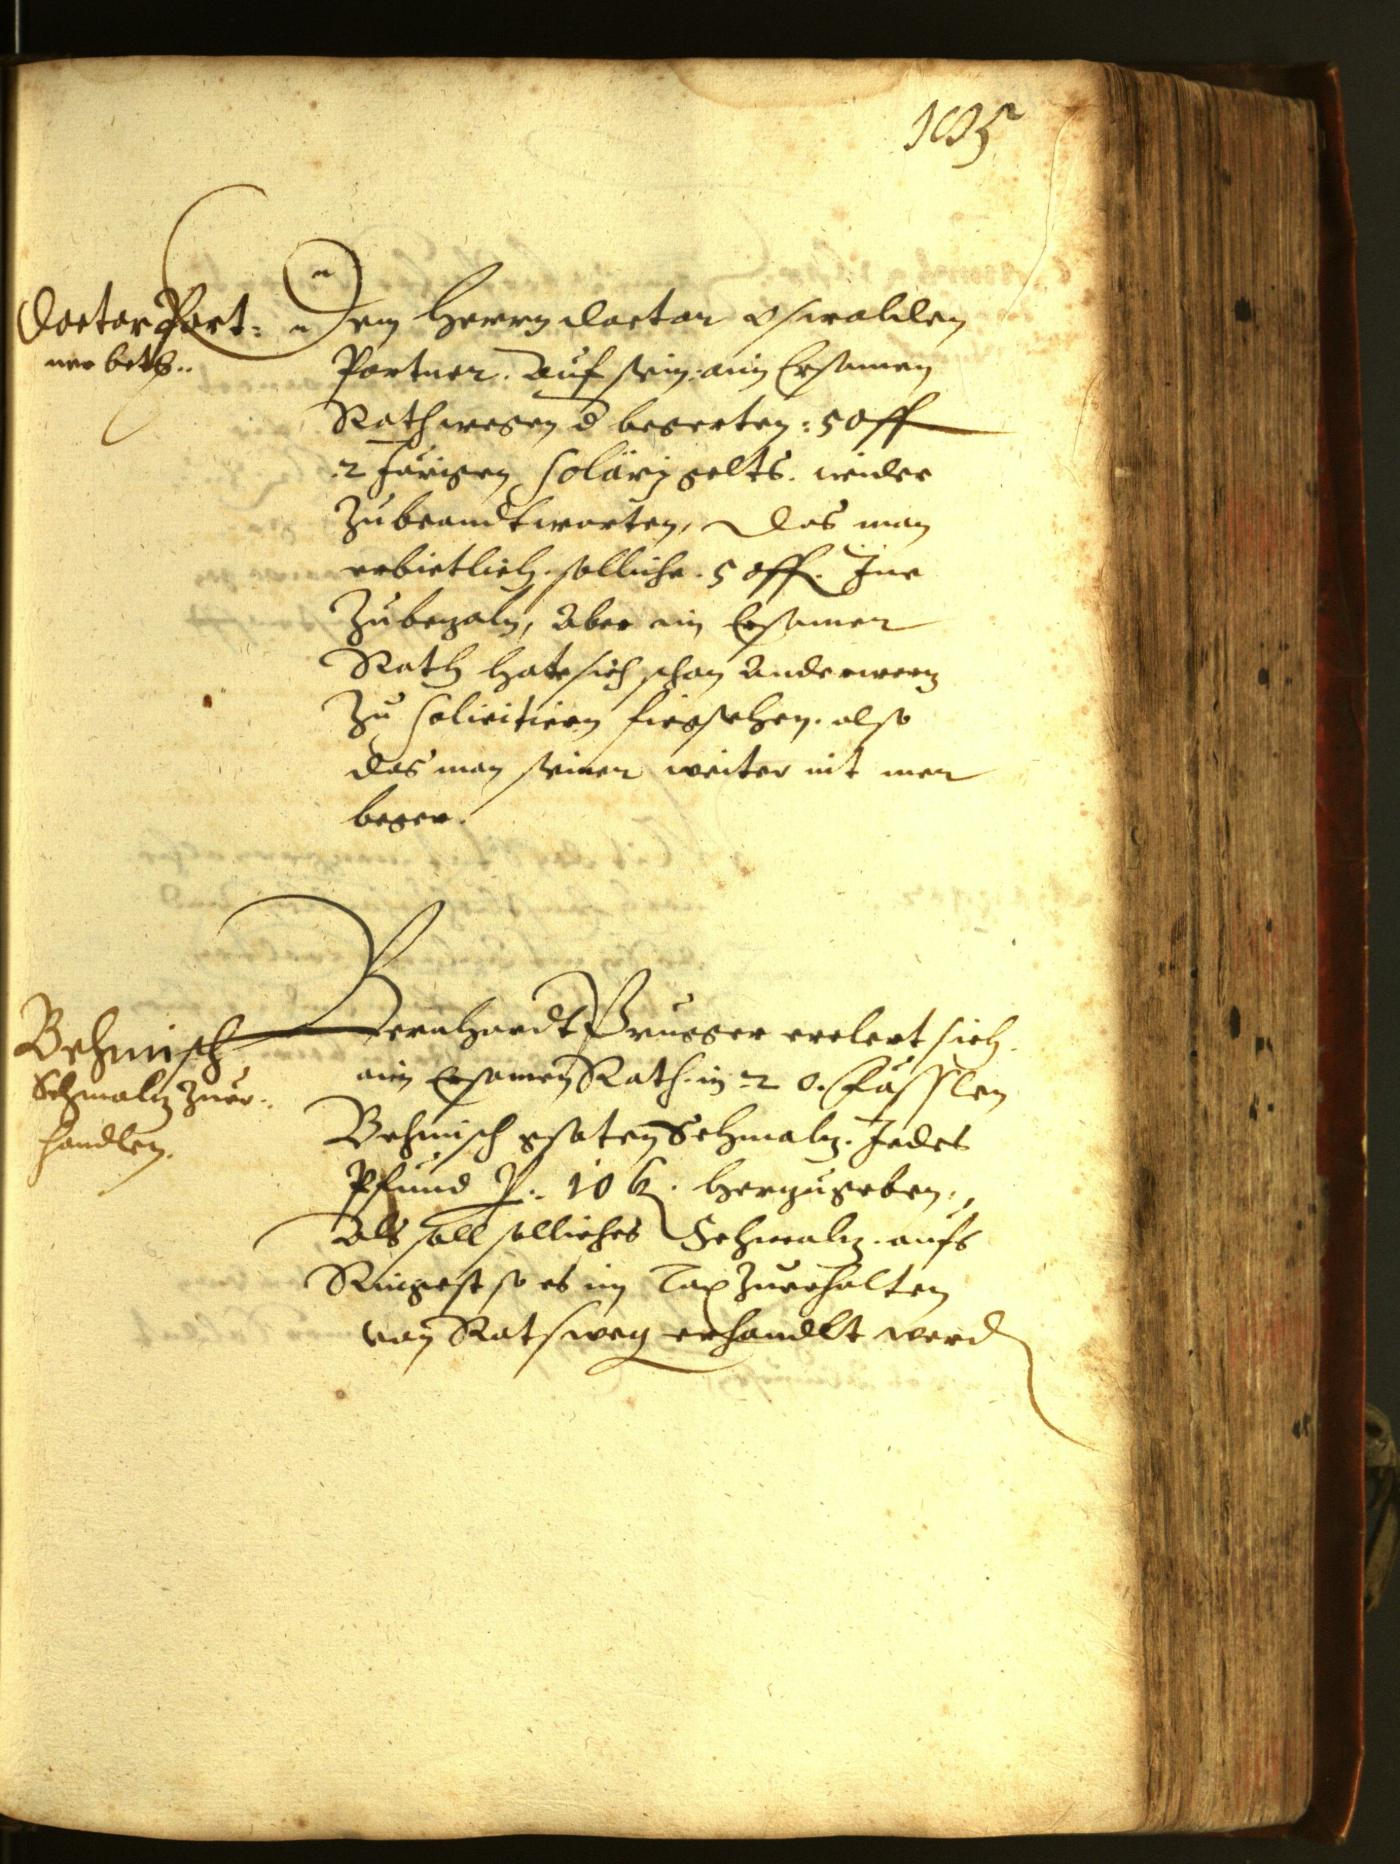 Doctor Port=
ner betr..
Dem Herrn doctor Oswalden
Portner. Auf sein: ain Ersamen
Rath wegen d begerten: 50 ff
2 Järigen Solärj gelts. wider
Zubeandtworten, Das man
erbietlich. solliche. 50 ff. Jne
Zubezaln, Aber ain Ersamer
Rath hat sich schon Anderwerz
Zu Solicitiern fiersehen. also
das man seiner weiter nit mer
beger.
Behmisch
Schmalz zuer..
handlen.
Bernhardt Prugger erclert sich.
aim Ersamen Rath. in 20. Fässlen
Behmisch gsoten Schmalz. Jedes
Pfund P.. 10 k. herzugeben.,
Als soll solliches Schmalz. aufs
Ringest so es im Tax zuerhalten
von Ratsweg erhandlt werd